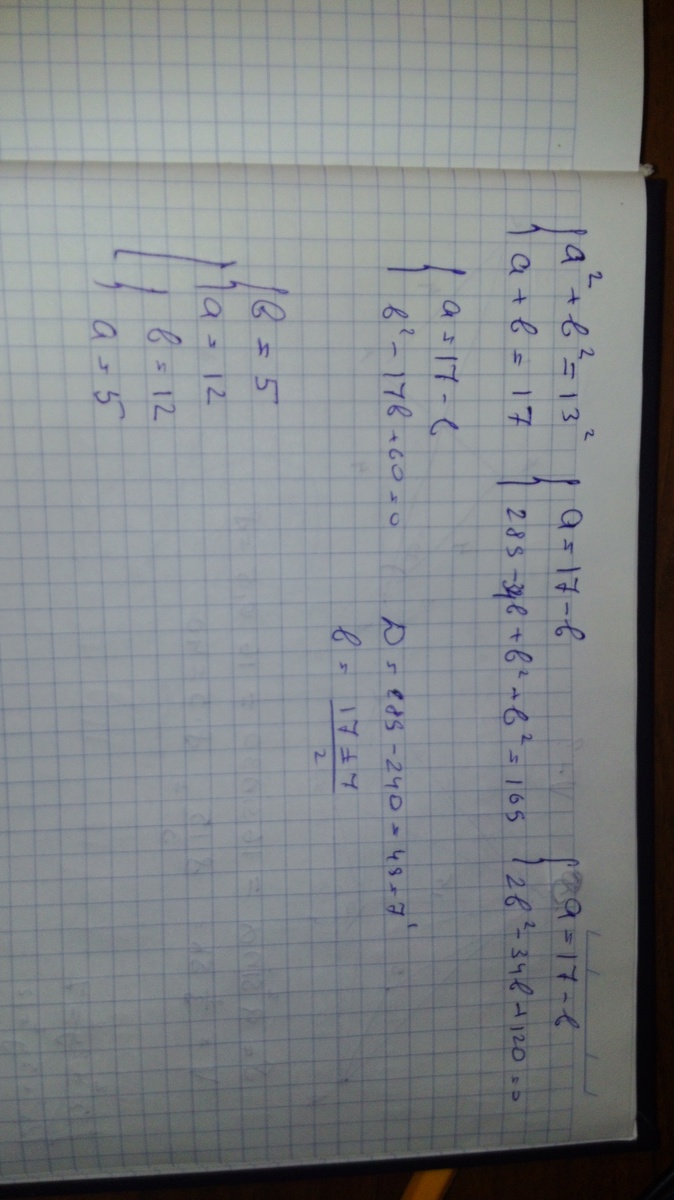 { a² + b² = 13²   { a = 17 - b   { a = 17 - b
{ a + b = 17   { 289 - 34b + b² + b² = 169   { 2b² - 34b + 120 = 0
{ a = 17 - b
{ b² - 17b + 60 = 0   D = 289 - 240 = 49 = 7
b = (17 ± 7)/2
[ { b = 5
{ a = 12
{ b = 12
{ a = 5